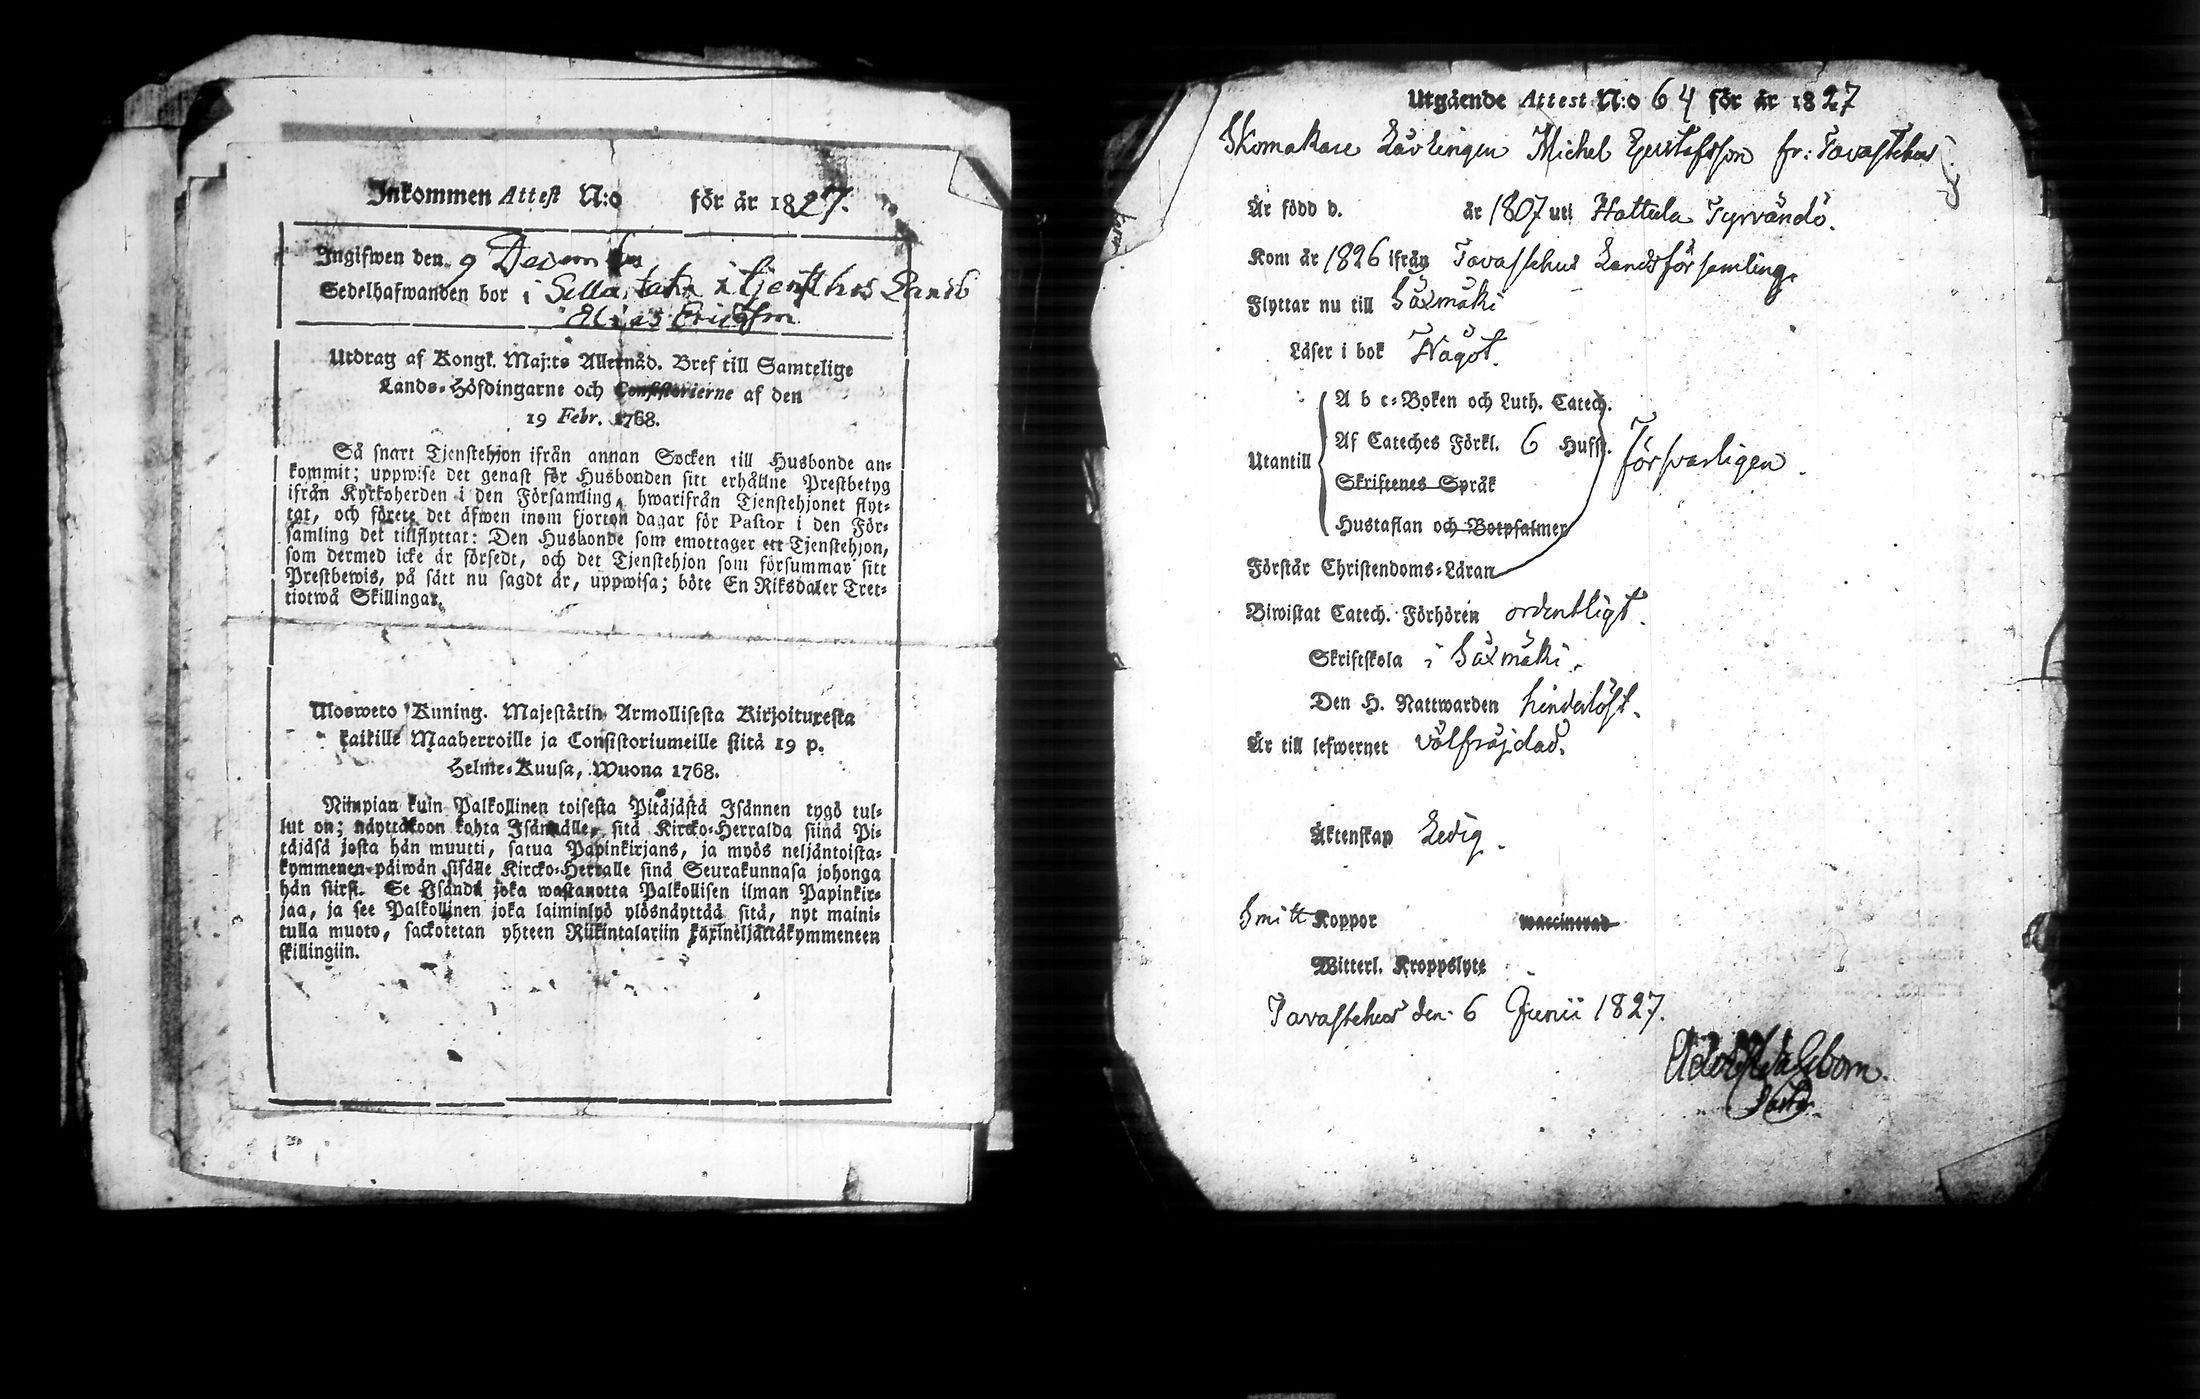 Inkommen Attest N:o för år 1827.
Ingifwen den 9 December
Sedelhafwanden bor i tjenst hos
Elias Ericsson
Utdrag af Kongl. Maj:ts Allernåd. Bref till Samtelige
Lands-Höfdingarne och Consistorierne af den
19 Febr. 1768.
Så snart Tjenstehjon ifrån annan Socken till Husbonde an-
kommit; uppwise det genast för Husbonden sitt erhållne Prestbetyg
ifrån Kyrkoherden i den Församling, hwarifrån Tjenstehjonet flyt-
tat, och förete det äfwen inom fjorton dagar för Pastor i den För-
samling det tillflyttat: Den Husbonde som emottager ett Tjenstehjon,
som dermed icke är försedt, och det Tjenstehjon som försummar sitt
Prestbewis, på sätt nu sagdt är, uppwisa; böte En Riksdaler Tret-
tiotwå Skillingar.
Ulosweto Kuning. Majestätin Armollisesta Kirjoituxesta
kaikille Maaherroille ja Consistoriumeille siitä 19 p.
Helme-Kuusa, Wuona 1768.
Niinpian kuin Palkollinen toisesta Pitäjästä Isännen tygö tul-
lut on; näyttäkoon kohta Isännälle, sitä Kircko-Herralda siinä Pi-
täjäsä josta hän muutti, saatua Papinkirjans, ja myös neljäntoista-
kymmenen päiwän sisälle Kircko-Herralle siinä Seurakunnasa johonga
hän siirsi. Se Isändä joka wastanotta Palkollisen ilman Papinkir-
jaa, ja see Palkollinen joka laiminlyö ylösnäyttää sitä, nyt maini-
tulla muoto, sackotetan yhteen Riikintalariin kaxineljättäkymmeneen
skillingiin.
Utgående Attest N:o 64 för år 1827
Skomakare Lärlingen Michel Gustafsson fr: Tavastehus
Är född d. år 1807 uti Hattula Tyrvändö.
Kom år 1826 ifrån Tavastehus Landsförsamling.
Flyttar nu till Säxmäki
Läser i bok Något.
A b c-Boken och Luth. Catech.
Utantill Af Cateches Förkl. 6 Hufst. Försvarligen.
Skriftenes Språk
Hustaflan och Botpsalmer
Förstår Christendoms-Läran
Biwistat Catech. Förhören ordentligt.
Skriftskola i Säxmäki.
Den H. Nattwarden hinderlöst.
Är till lefwernet välfräjdad.
Äktenskap Ledig.
Smitt Koppor waccinerad
Witterl. Kroppslyte
Tavastehus den 6 Junii 1827.